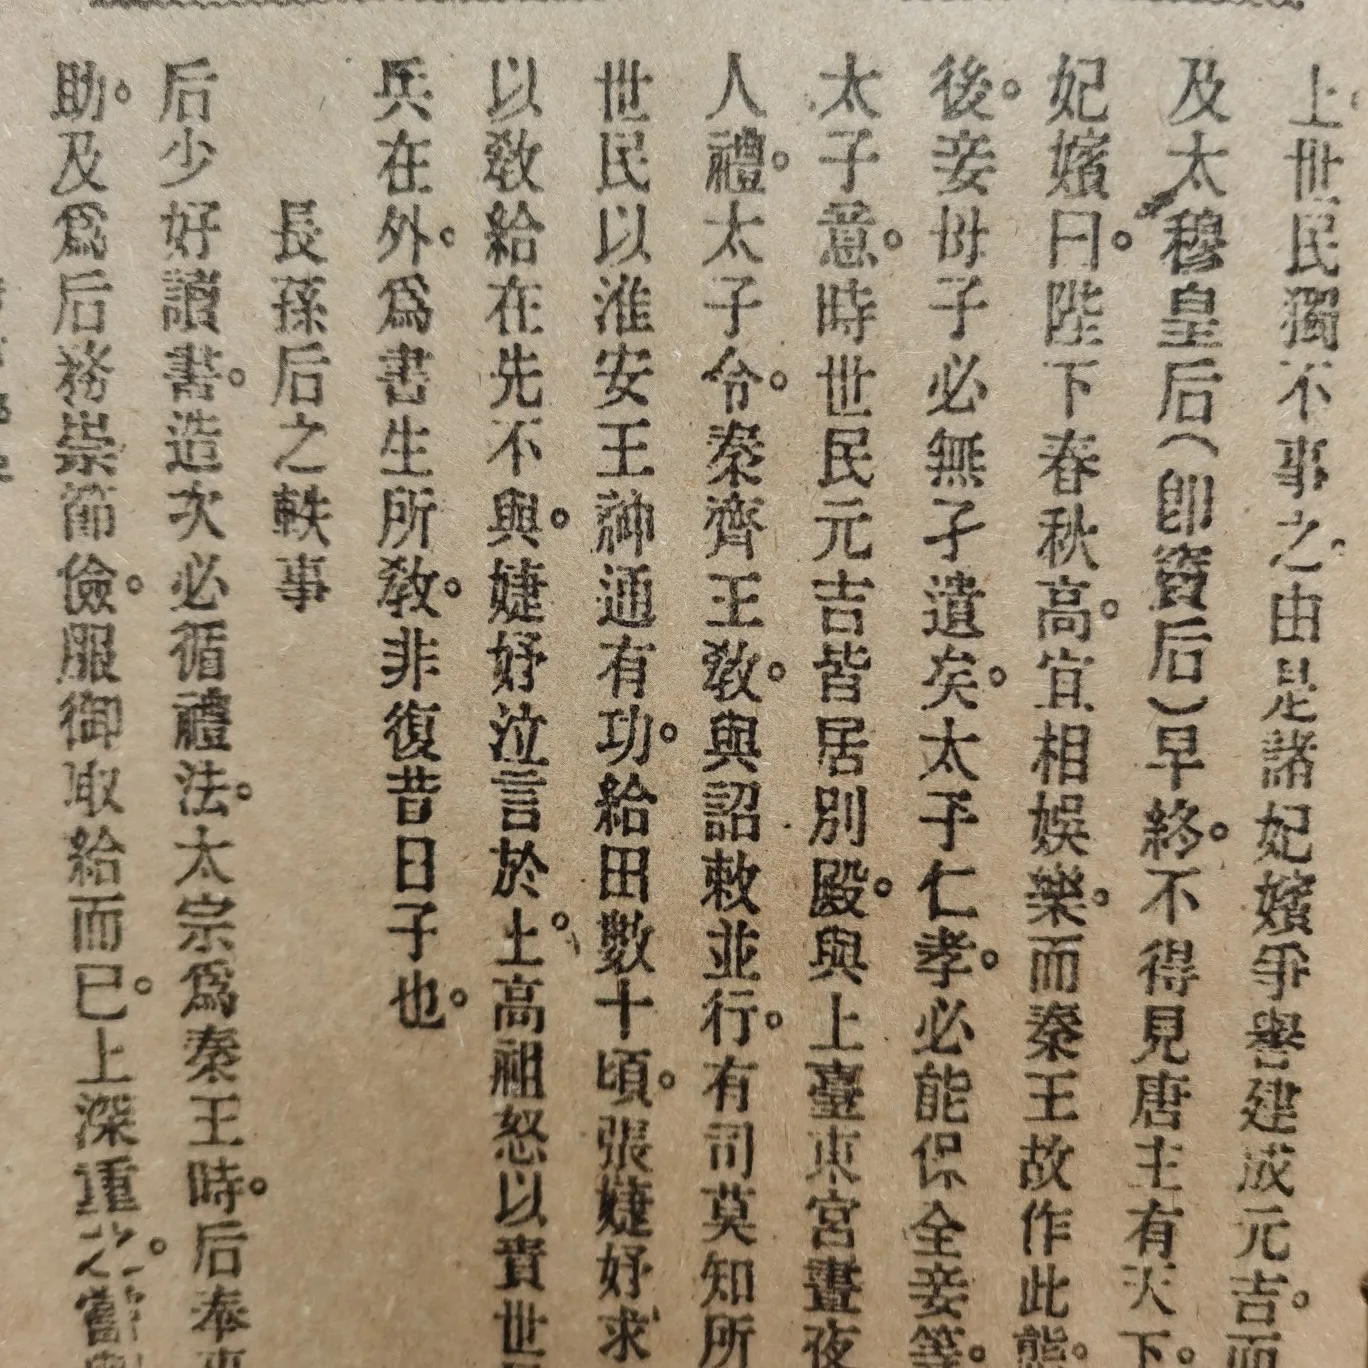 上。世民獨不事之。由是諸妃嬪爭譽建成元吉。而
及太穆皇后（卽竇后）早終。不得見唐主有天下。
妃嬪曰。陛下春秋高。宜相娛樂。而秦王故作此態。
後。妾母子必無孑遺矣。太子仁孝。必能保全妾等。
太子意。時世民元吉皆居別殿。與上臺東宮晝夜
人禮。太子令。秦齊王敎。與詔敕並行。有司莫知所
世民以淮安王神通有功。給田數十頃。張婕妤求
以敎給在先不與。婕妤泣言於上。高祖怒以責世
兵在外。爲書生所敎。非復昔日子也。
長孫后之軼事
后少好讀書。造次必循禮法。太宗爲秦王時。后奉事
助。及爲后務崇節儉。服御取給而已。上深重之。嘗與